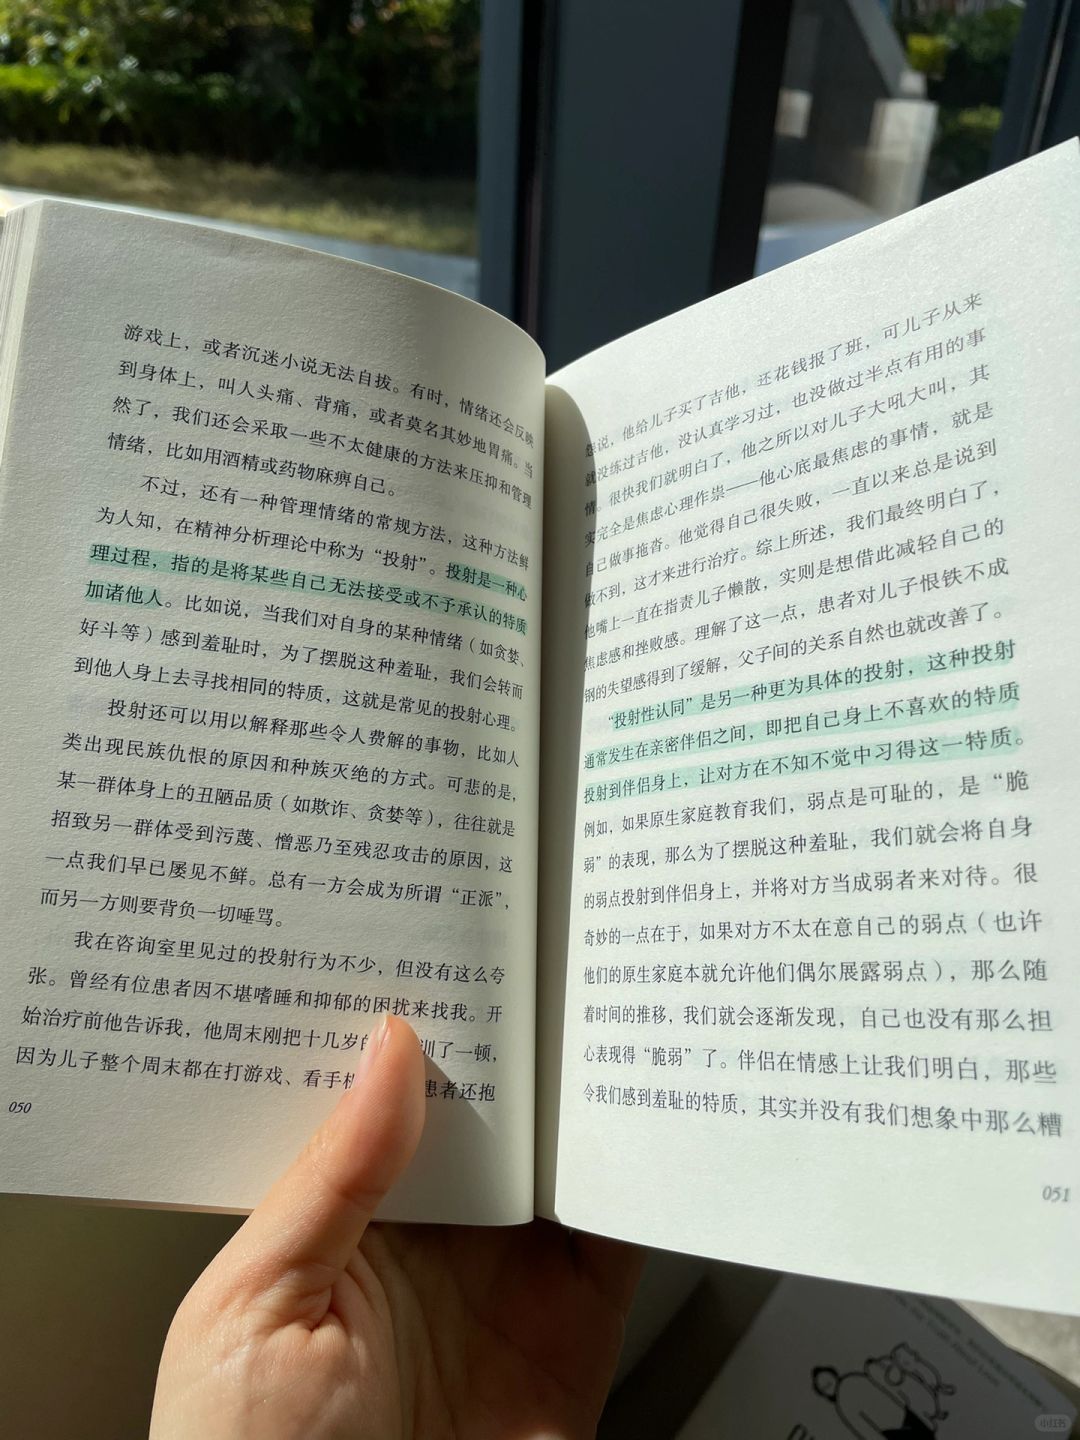 游戏上，或者沉迷小说无法自拔。有时，情绪还会反映
到身体上，叫人头痛、背痛，或者莫名其妙地胃痛。当
然了，我们还会采取一些不太健康的方法来压抑和管理
情绪，比如用酒精或药物麻痹自己。
不过，还有一种管理情绪的常规方法，这种方法鲜
为人知，在精神分析理论中称为“投射”。投射是一种心
理过程，指的是将某些自己无法接受或不予承认的特质
加诸他人。比如说，当我们对自身的某种情绪（如贪婪、
好斗等）感到羞耻时，为了摆脱这种羞耻，我们会转而
到他人身上去寻找相同的特质，这就是常见的投射心理。
投射还可以用以解释那些令人费解的事物，比如人
类出现民族仇恨的原因和种族灭绝的方式。可悲的是，
某一群体身上的丑陋品质（如欺诈、贪婪等），往往就是
招致另一群体受到污蔑、憎恶乃至残忍攻击的原因，这
一点我们早已屡见不鲜。总有一方会成为所谓“正派”，
而另一方则要背负一切唾骂。
我在咨询室里见过的投射行为不少，但没有这么夸
张。曾经有位患者因不堪嗜睡和抑郁的困扰来找我。开
始治疗前他告诉我，他周末刚把十几岁的训了一顿，
因为儿子整个周末都在打游戏、看手机患者还抱
050
怨说，他给儿子买了吉他，还花钱报了班，可儿子从来
就没练过吉他，没认真学习过，也没做过半点有用的事
情。很快我们就明白了，他之所以对儿子大吼大叫，其
实完全是焦虑心理作祟——他心底最焦虑的事情，就是
自己做事拖沓。他觉得自己很失败，一直以来总是说到
做不到，这才来进行治疗。综上所述，我们最终明白了，
他嘴上一直在指责儿子懒散，实则是想借此减轻自己的
焦虑感和挫败感。理解了这一点，患者对儿子恨铁不成
钢的失望感得到了缓解，父子间的关系自然也就改善了。
“投射性认同”是另一种更为具体的投射，这种投射
通常发生在亲密伴侣之间，即把自己身上不喜欢的特质
投射到伴侣身上，让对方在不知不觉中习得这一特质。
例如，如果原生家庭教育我们，弱点是可耻的，是“脆
弱”的表现，那么为了摆脱这种羞耻，我们就会将自身
的弱点投射到伴侣身上，并将对方当成弱者来对待。很
奇妙的一点在于，如果对方不太在意自己的弱点（也许
他们的原生家庭本就允许他们偶尔展露弱点），那么随
着时间的推移，我们就会逐渐发现，自己也没有那么担
心表现得“脆弱”了。伴侣在情感上让我们明白，那些
令我们感到羞耻的特质，其实并没有我们想象中那么糟
051
小红书